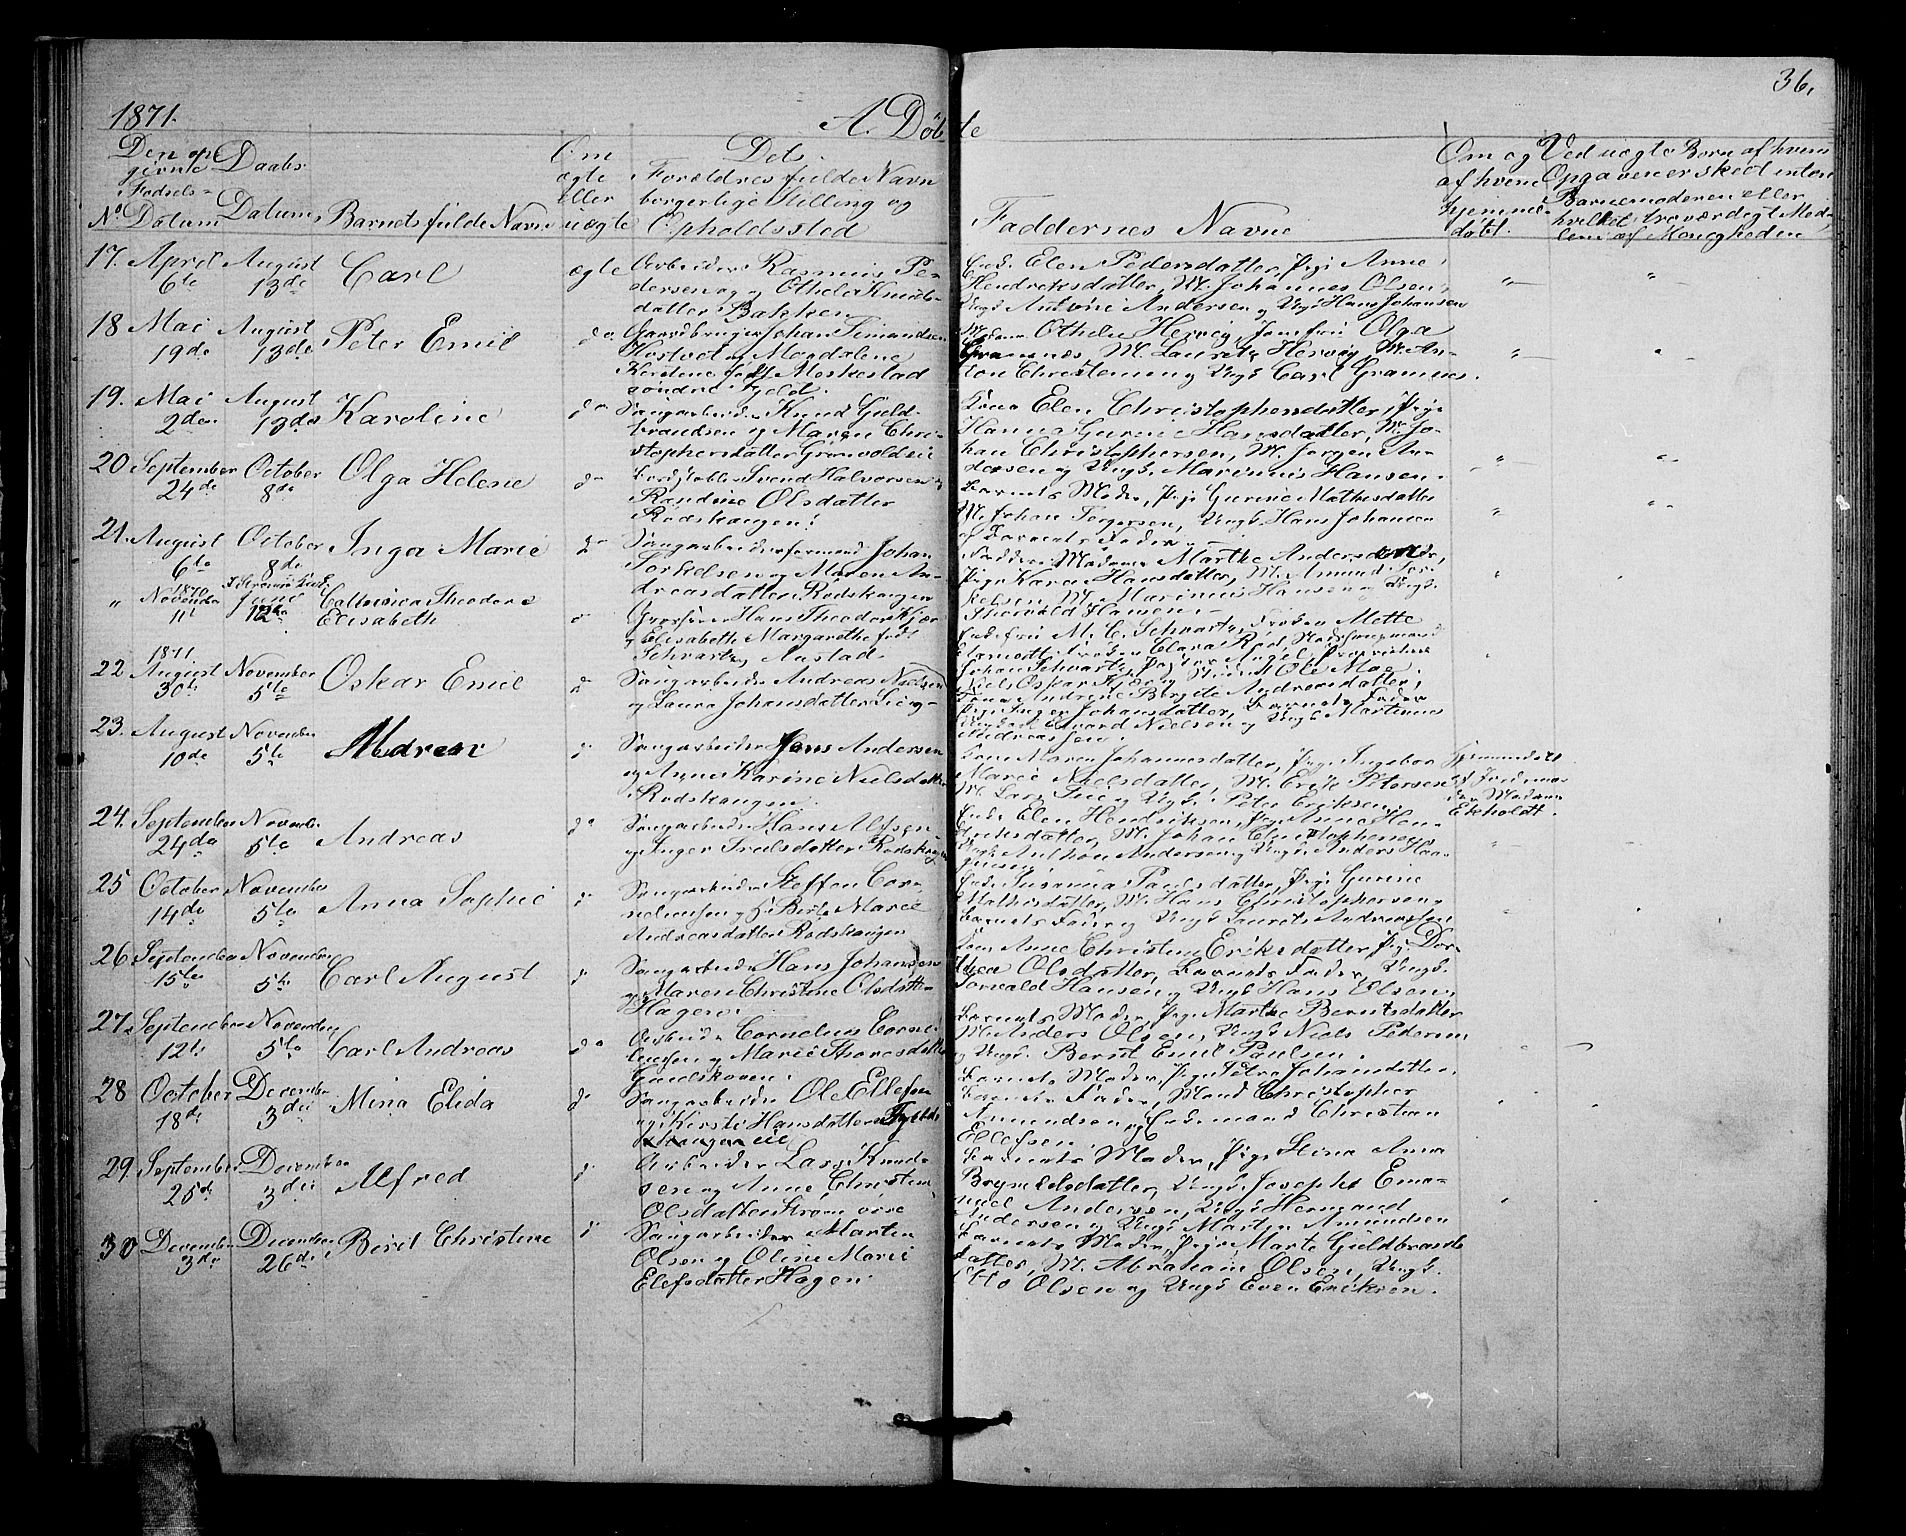 36.
1871.
A. Döbte
Den op Daabs
givne
Fodsels-
No Datum Datum, Barnets fulde Navn
Om ægte eller uægte
Dets Forældres fulde Navn
borgerlige Stilling og
Opholdssted
Faddernes Navne
Om og af hvem hjemmedöbt.
Ved uægte Børn af hvem
Opgaven er skeet inten
Barnemoderen eller
hvilket troværdigt Med-
lem af Menigheden
17. April 6te August 13de Carl ægte
Arbeider Rasmus Pe-
dersen og Othelie Knuds-
datter Bakken
Enke Elen Pedersdatter, Pige Anne
Hendriksdatter, M. Johannes Olsen,
Ungk. Antone Andersen og Ungk. Hans Johansen
18 Mai 19de August 13de Peter Emil do
Gaardbruger Johan Simonsen
og Magdalene
Kirstine født Moskestad
söndre Fjeld.
Madame Othelie Hervig, Jomfru Olga
Gramnæs, M. Lauretz Hervig, M. An-
ton Christensen og Ungk. Carl Gramnæs.
19. Mai 2den August 13de Karoline do
Saugarbeider Knud Guld-
brandsen og Maren Chri-
stophersdatter Grönvoldeie
Kone Elen Christophersdatter, Pige
Hanna Gurine Hansdatter, M. Jo-
han Christophersen, M. Jørgen An-
dersen og Ungk. Marinius Hansen.
20 September 24de October 8de Olga Helene do
Svend Halvorsen og
Randine Olsdatter
Rodskangen.
Barnets Moder, Pige Gurine Mathisdatter
M. Johan Torgersen, Ungk. Hans Johansen
og Barnets Fader
21. August 6te October 8de Inga Marie do
Saugarbeiderformand Johan
Torkelsen og Maren An-
dreasdatter Rodskangen
Faddere: Madame Marthe Andersen,
Pige Karen Hansdatter, M. Amund Tor-
kelsen, M. Marinius Hansen og Ungk.
Thorvald Hansen.
" 1870 November 11 Juni 12te Theodora
Elisabeth
Grosserer Hans Theodor Kjær
og Elisabeth Margarethe født
Schwartz, Aastad.
Enkefru M. C. Schvartz, Frøken Mette
Frøken Clara Rød,
Johan Schwartz, Pastor
Niels Oskar Kjær og Student Ole Moe.
22 1871 August 30te November 5te Oskar Emil do
Saugarbeider Andreas Nielsen
og Laura Johansdatter Lie
Kone Andrine Birgite Andreasdatter,
Pige Inger Johansdatter, Barnets Fader
Ungkarl Edvard Nielsen og Ungk. Martinius
Andreassen.
23. August 10de November 5te Maren do
Saugarbeider Jens Andersen
og Anne Karine Nielsdatter
Rodskangen
Kone Maren Johannesdatter, Pige Ingebor
Marie Nielsdatter, M. Erik Petersen
M. Lars Lie og Ungk. Peter Eriksen
Hjemmedöbt
af Jordemo-
der Madam
Ekholdt.
24. September 24de November 5te Andreas do
Saugarbeider Hans Alfsen
og Inger Truelsdatter Rodskangen
Enke Elen Hendriksen, Pige Anne Hen-
driksdatter, M. Johan Christophersen
Ungk. Anthon Andersen og Ungk. Anders Haa-
gensen
25 October 14de November 5te Anna Sophie do
Saugarbeider Steffen Cor-
neliussen og H. Birte Marie
Andreasdatter Rodskangen
Enke Susanna Paulsdatter, Pige Gurine
Mathisdatter, M. Hans Christophersen,
Barnets Fader og Ungk. Laurits Andreassen
26 September 15te November 5te Carl August do
Saugarbeider Hans Johansen
og Maren Christine Olsdatter
Hagen.
Kone Anne Christine Eriksdatter, Pige Dor-
thea Olsdatter, Barnets Fader, Ungk.
Torvald Hansen og Ungk. Hans Olsen,
27. September 12te November 5te Carl Andreas do
Arbeider Cornelius Corne-
liussen og Marie Thoresdatter
Barnets Moder, Pige Marthe Berntsdatter
M. Anders Olsen, Ungk. Niels Pedersen
og Ungk. Bernt Emil Paulsen.
28 October 18de December 3die Mina Elida do
Saugarbeider Ole Ellefsen
og Kirsti Hansdatter
Barnets Moder, Pige Petra Johansdatter,
Barnets Fader, Mand Christopher
Amundsen og Enkemand Christian
Ellefsen
29. September 25de December 3die Alfred do
Arbeider Lars Knud-
sen og Anne Christine
Olsdatter Strøm
Barnets Moder, Pige Stina Anna
Brynildsdatter, Ungk. Joseph Ema-
nuel Andersen, Ungk. Hermand
Andersen og Ungk. Martin Amundsen
30 December 3die December 26de Berit Christine do
Saugarbeider Martin
Olsen og Oline Marie
Elefsdatter Hagen.
Barnets Moder, Pige Marte Guldbrands-
datter, M. Abraham Olsen, Ungk.
Otto Olsen og Ungk. Even Eriksen.